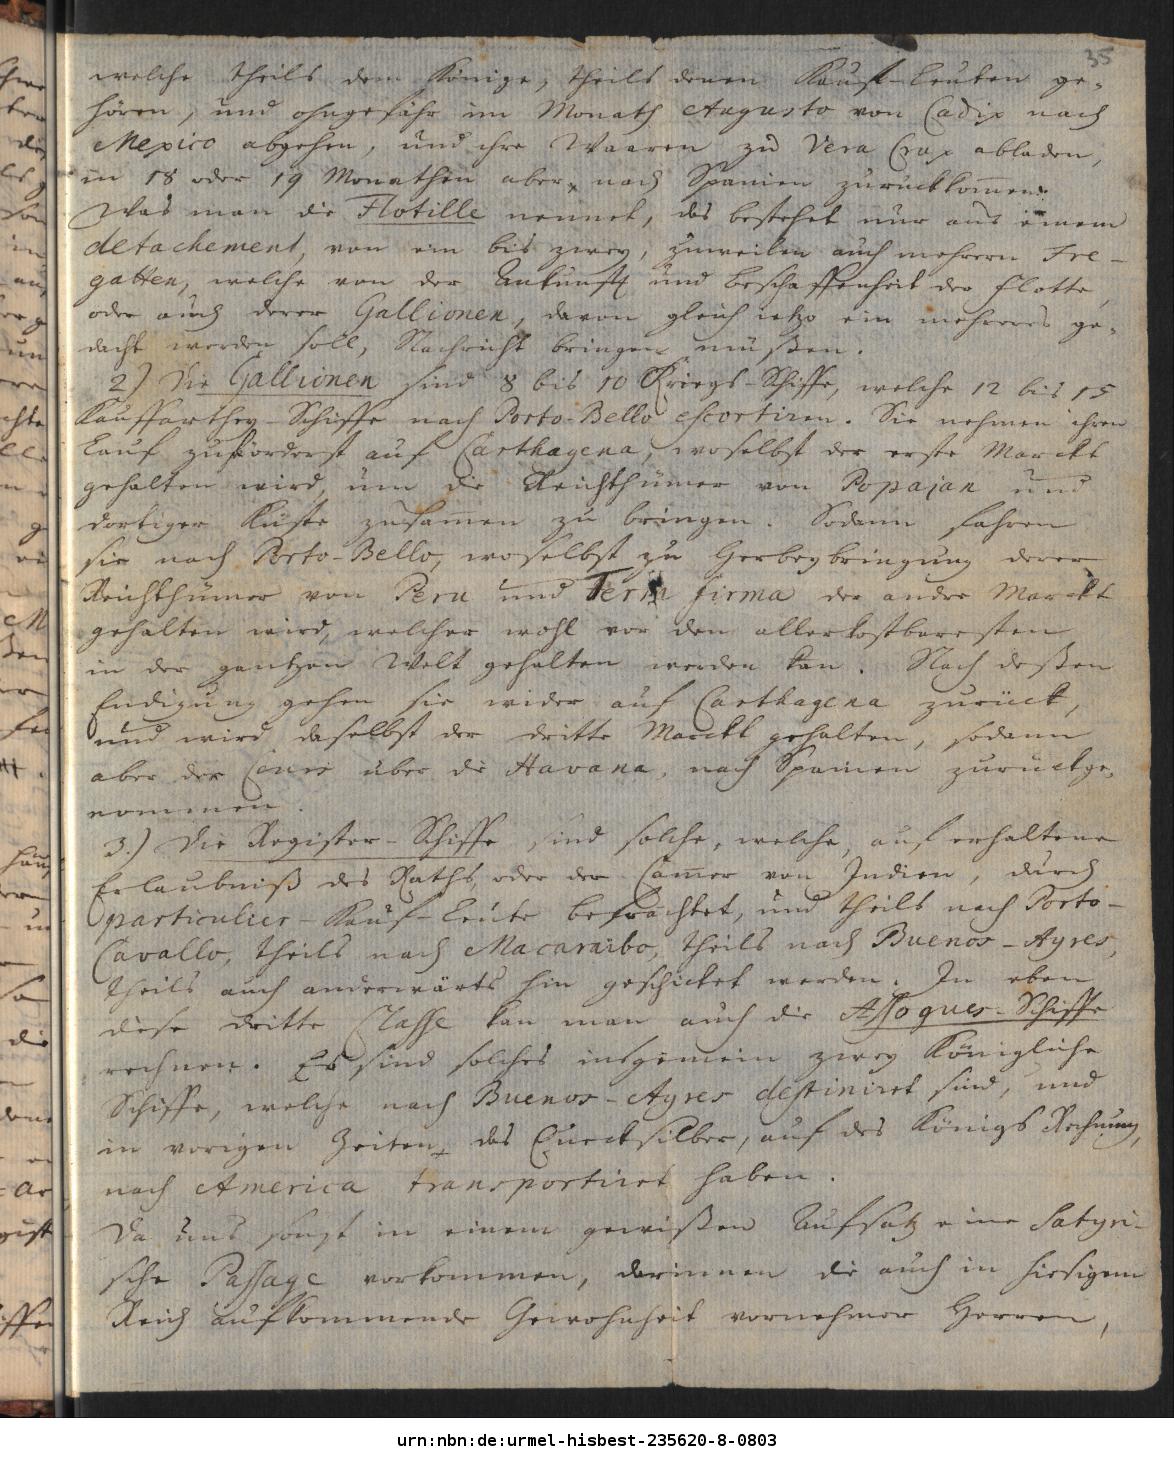 35
welche theils dem Könige, theils denen Kauf-Leuten ge-
hören, und ohngefähr im Monath Augusto von Cadix nach
Mexico abgehen, und ihre Waaren zu Vera Crux abladen,
in 18 oder 19 Monathen aber, nach Spanien zurückkom̄en.
Was man die Flotille nennet, das bestehet nur aus einem
detachement, von ein bis zwey, zuweilen auch mehrern Fre-
gatten, welche von der Ankunft und Beschaffenheit der Flotte,
oder auch derer Gallionen, davon gleich ietzo ein mehreres ge-
dacht werden soll, Nachricht bringen müßen.
2) Die Gallionen sind 8 bis 10 Kriegs-Schiffe, welche 12 bis 15
Kauffarthey-Schiffe nach Porto-Bello escortiren. Sie nehmen ihren
Lauf zuförderst auf Carthagena, woselbst der erste Marckt
gehalten wird, um die Reichthümer von Popajan und
dortiger Küste zusam̄en zu bringen. Sodann fahren
sie nach Porto-Bello, woselbst zu Herbeybringung derer
Reichthümer von Peru und Terra firma der andre Marckt
gehalten wird, welcher wohl vor den allerkostbaresten
in der gantzen Welt gehalten werden kan. Nach deßen
Endigung gehen sie wider auf Carthagena zurück,
und wird daselbst der dritte Marckt gehalten, sodann
aber der Cours über die Havana, nach Spanien zurückge-
nommen.
3.) Die Register-Schiffe sind solche, welche, auf erhaltene
Erlaubniß des Raths, oder der Cam̄er von Indien, durch
particulier-Kauf-Leute befrachtet, und theils nach Porto-
Cavallo, theils nach Macaraibo, theils nach Buenos-Ayres,
theils auch anderwärts hin geschicket werden. In eben
diese dritte Classe kan man auch die Assogues-Schiffe
rechnen. Es sind solches insgemein zwey Königliche
Schiffe, welche nach Buenos-Ayres destiniret sind, und
in vorigen Zeiten, das Quecksilber, auf des Königs Rechnung,
nach America transportiret haben.
Da uns sonst in einem gewißen Aufsatz eine Satyri-
sche Passage vorkommen, darinnen die auch in hiesigem
Reich aufkommende Gewohnheit vornehmer Herren,
urn:nbn:de:urmel-hisbest-235620-8-0803